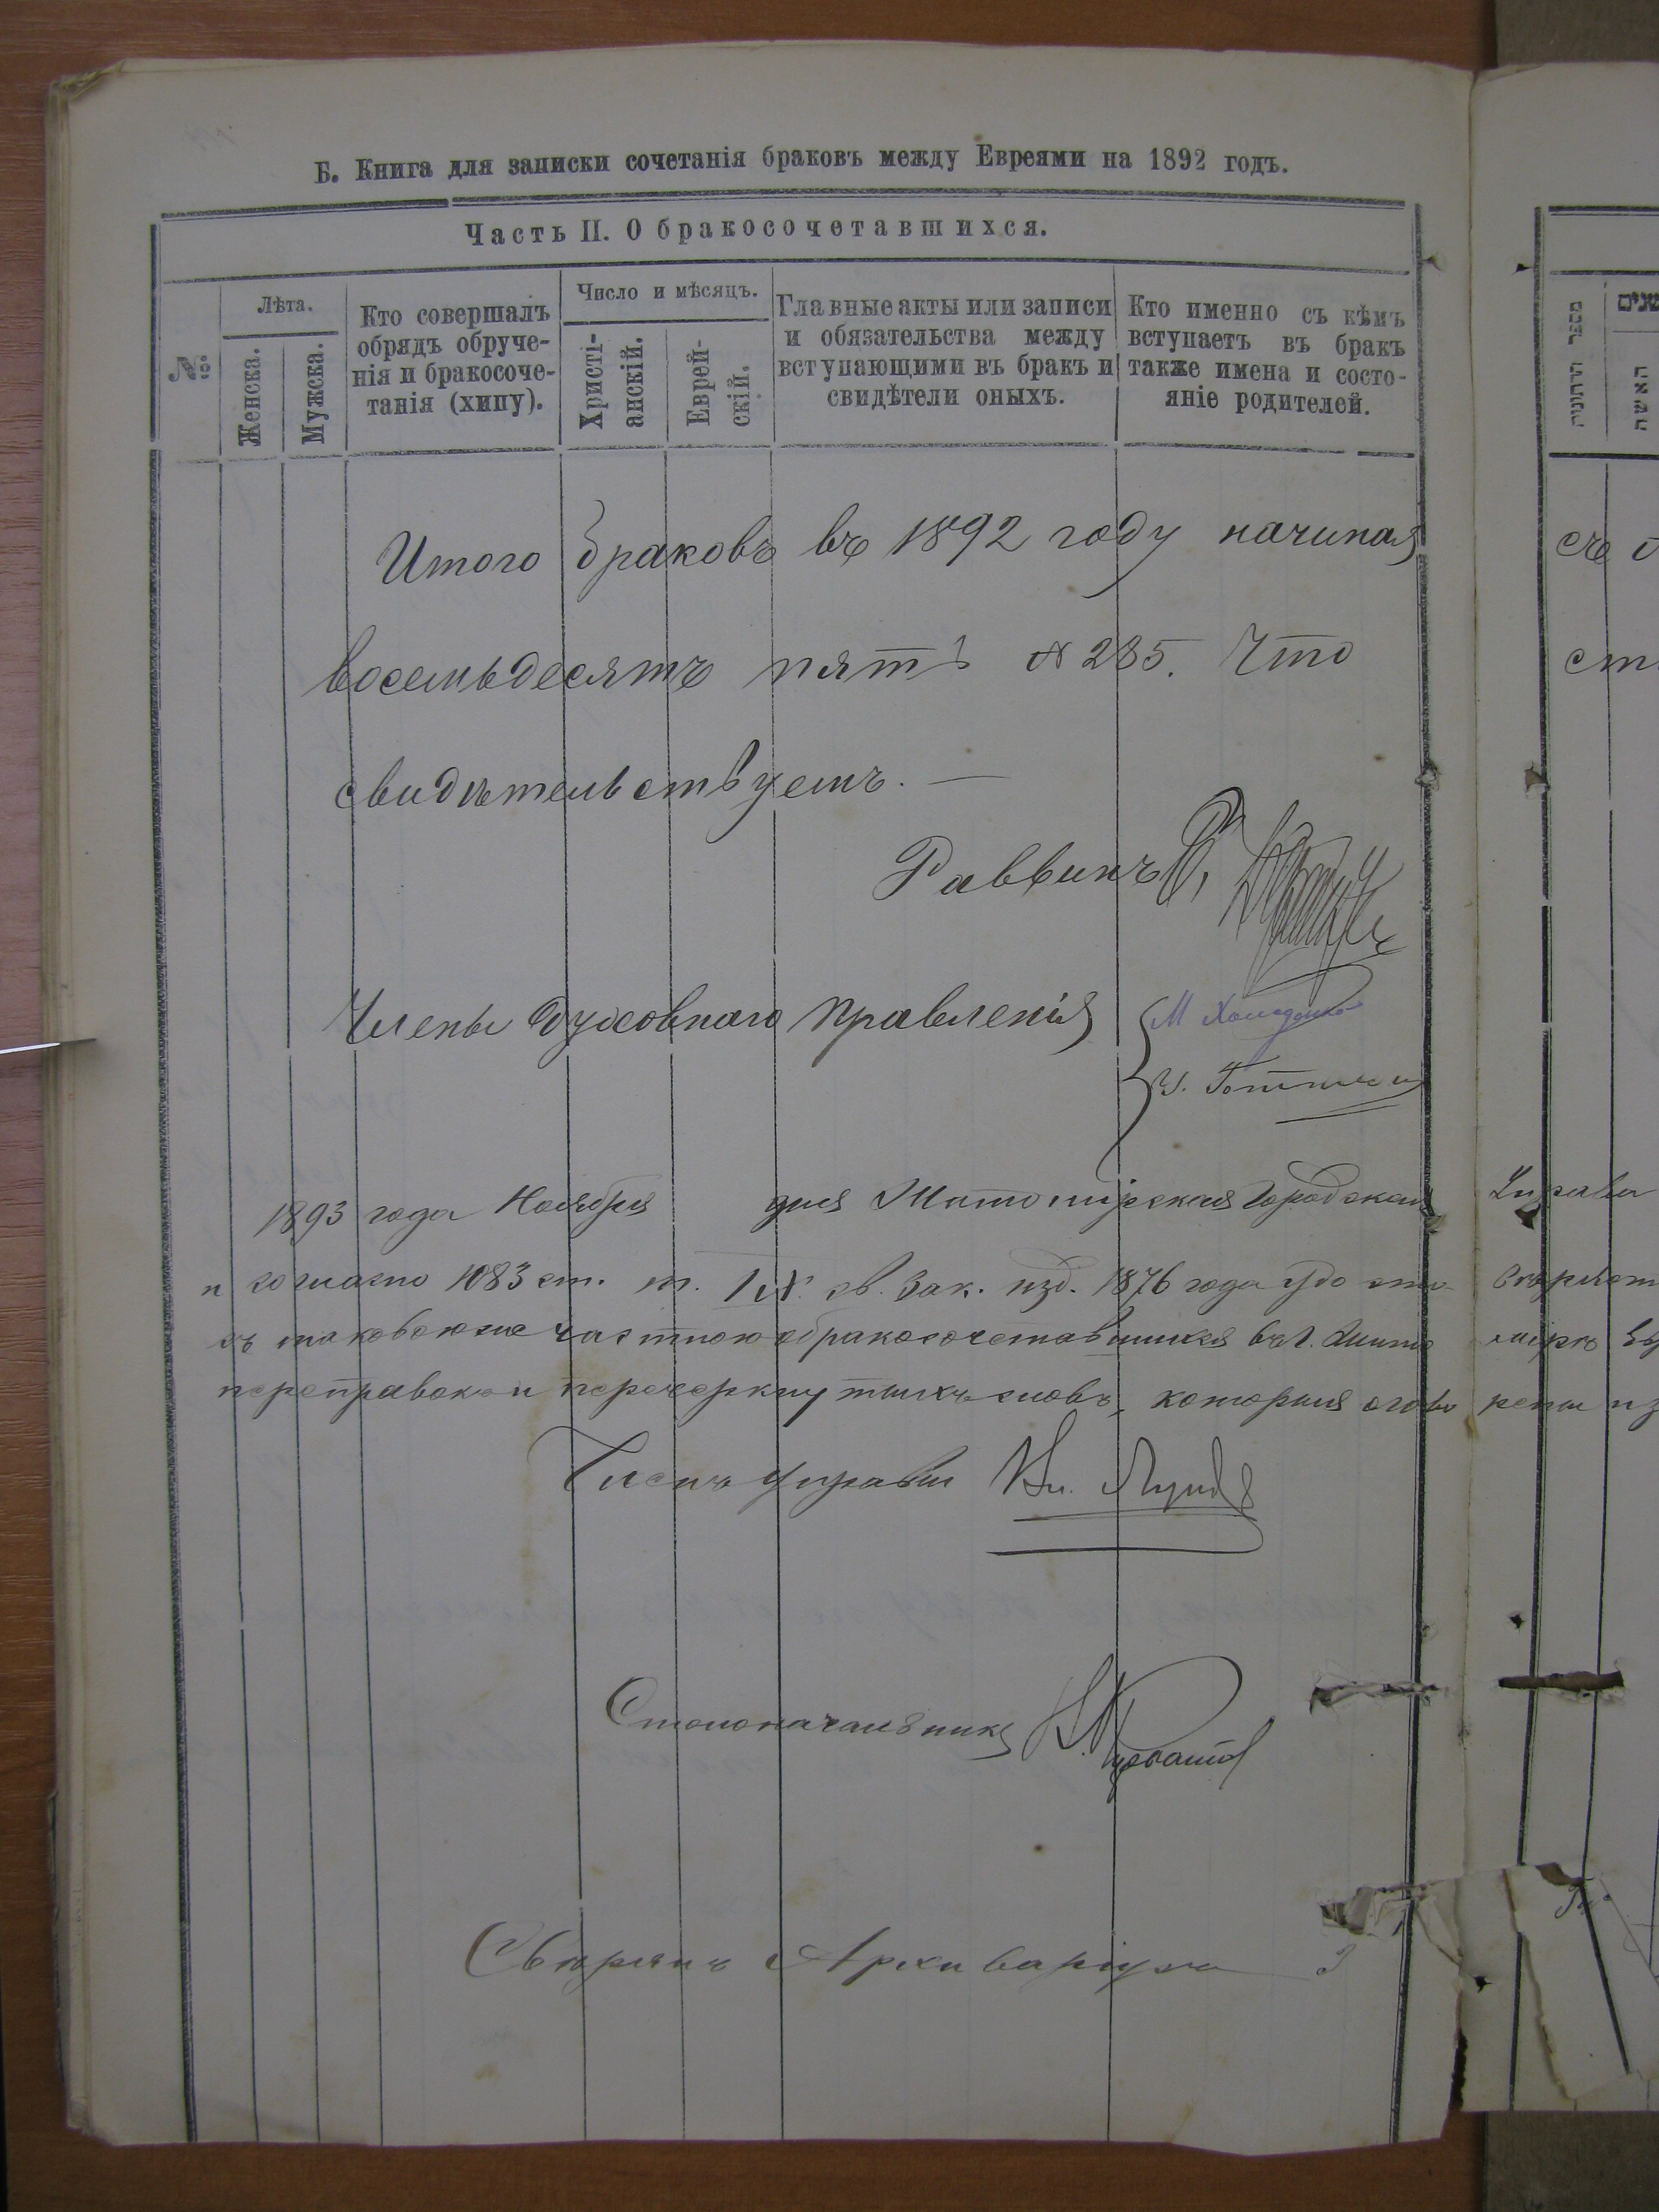 Б. Книга для записки сочетанія браковъ между Евреями на 1892 годъ.
Часть II. О бракосочетавшихся.
№
Лѣта.
Женска.
Мужска.
Кто совершалъ
обрядъ обруче-
нія и бракосоче-
танія (хипу).
Число и мѣсяцъ.
Христі-
анскій.
Еврей-
скій.
Главные акты или записи
и обязательства между
вступающими въ бракъ и
свидѣтели оныхъ.
Кто именно съ кѣмъ
вступаетъ въ бракъ
также имена и состо-
яніе родителей.
Итого браковъ въ 1892 году начиная съ
восемьдесятъ пять № 285. Что
свидѣтельствуемъ. —
Раввинъ
Члены Духовнаго Правленія
1893 года Ноября дня Житомірская Городская Управа
и согласно 1083 ст. т. IX св. Зак. изд. 1876 года удо
съ таковою же частною бракосочетавшихся въ г. Жито мірѣ
переправокъ и перечеркнутыхъ словъ, которыя огово рены
Членъ Управы
Столоначальникъ
Свѣрялъ Архиваріусъ
מספר החתונות
שנים
האשה